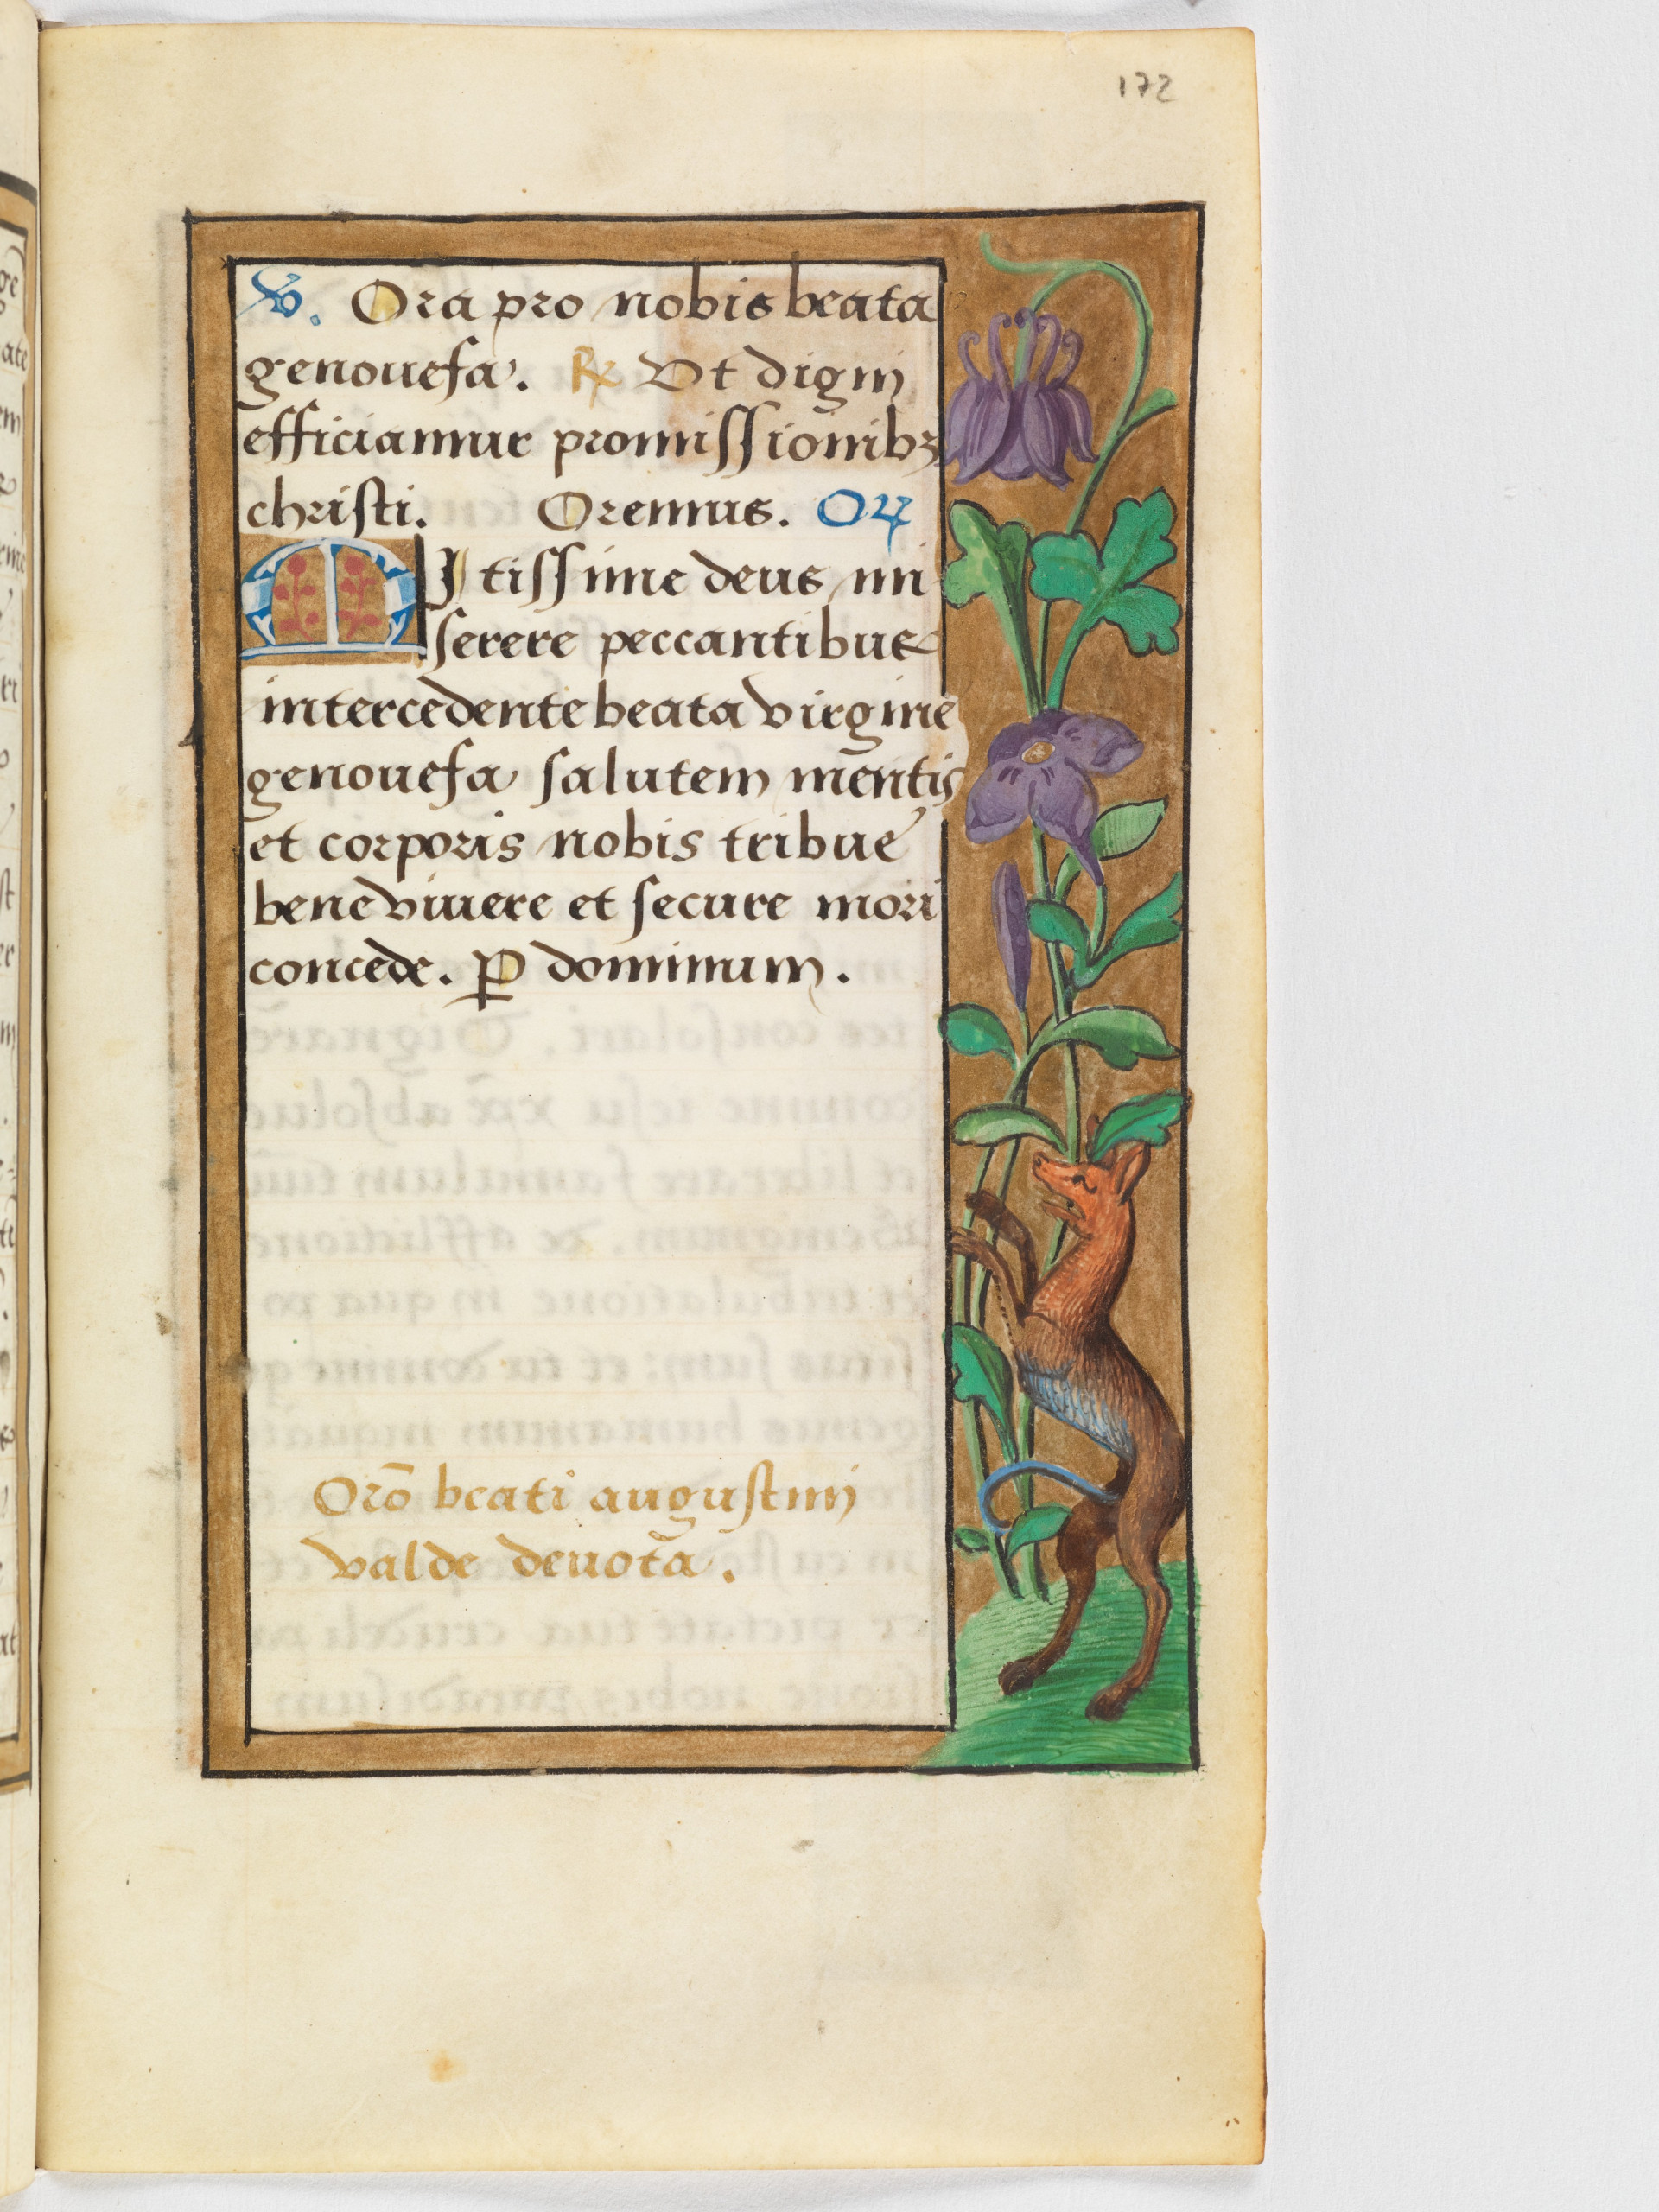 172
℣. Ora pro nobis beata
genouefa. ℟ Vt digni
efficiamur promissionibꝫ
christi. Oremus. Oꝝ
MItissime deus mi
serere peccantibus
intercedente beata virgine
genouefa salutem mentis
et corporis nobis tribue
bene viuere et secure mori
concede. ꝑ dominum.
Orō beati augustini
valde deuota.